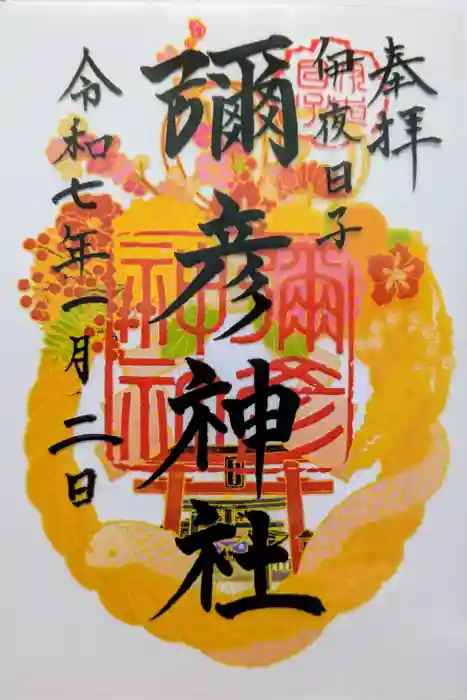 奉拝
伊夜日子
彌彦神社
彌彦
神社
令和七年一月二日